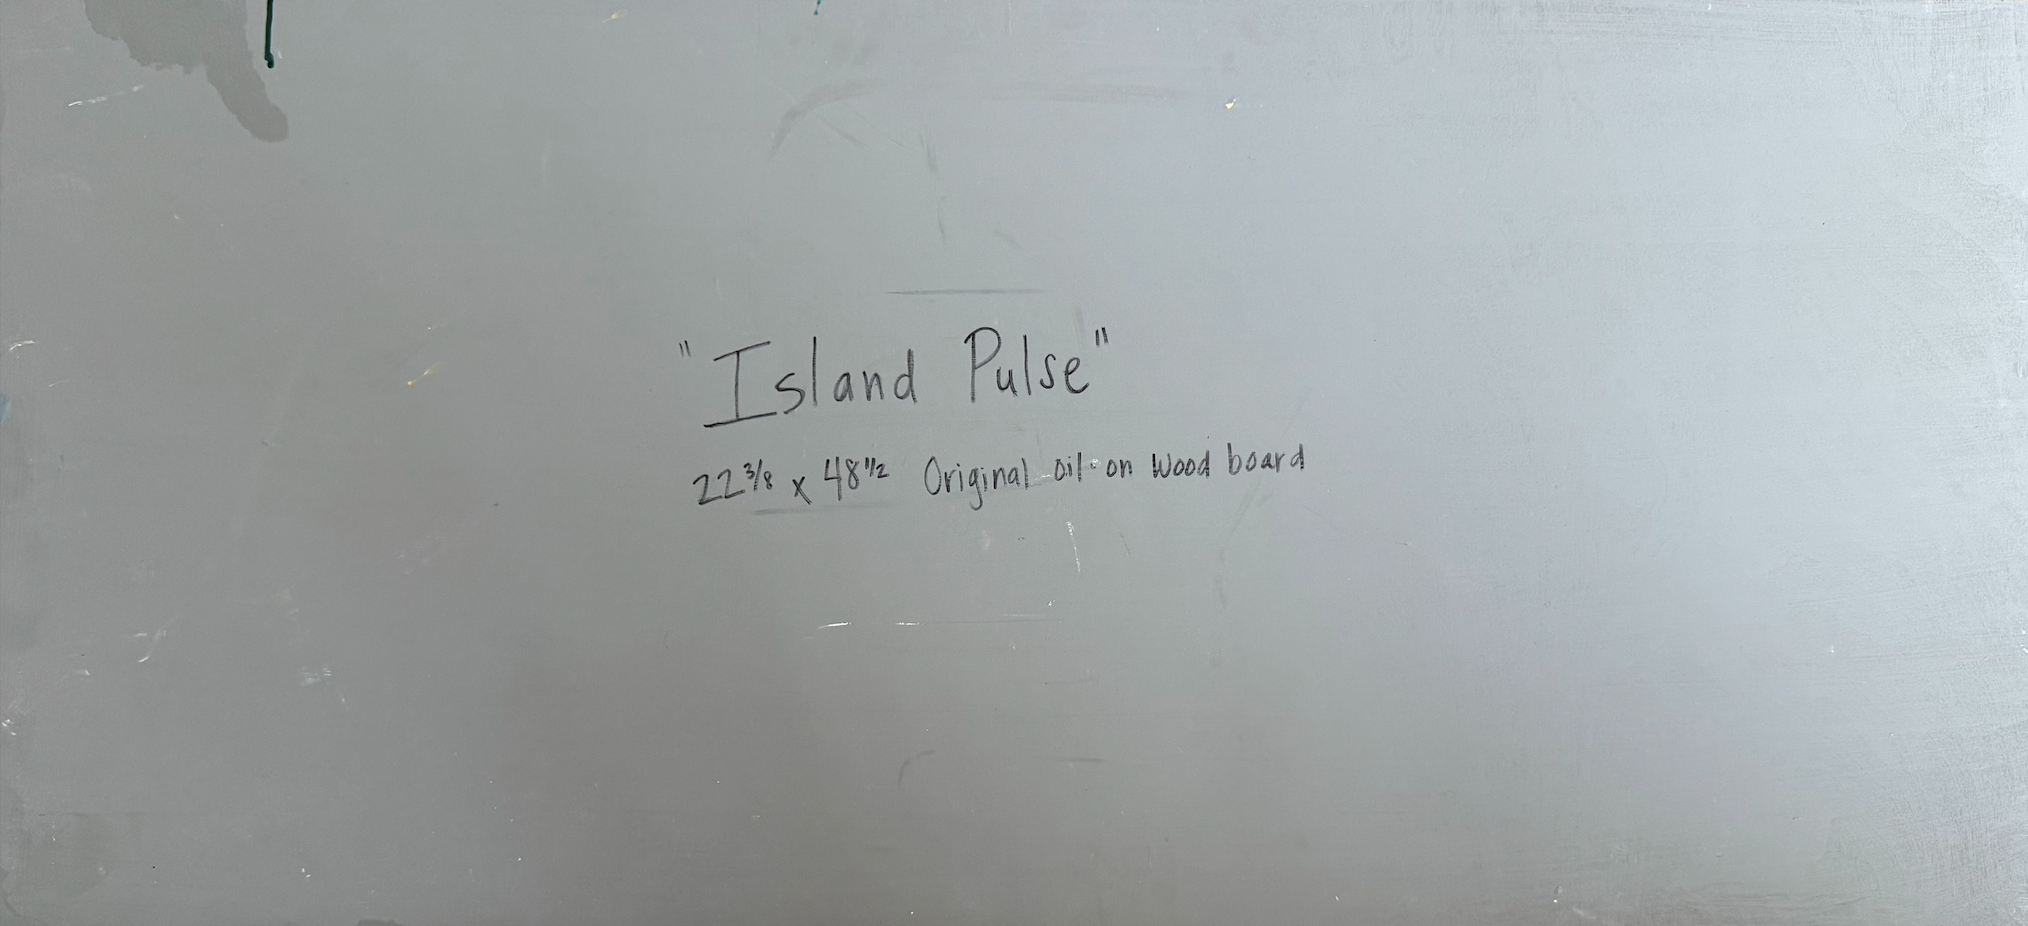 "Island Pulse"
22 3/8 x 48 1/2 Original oil on Wood board